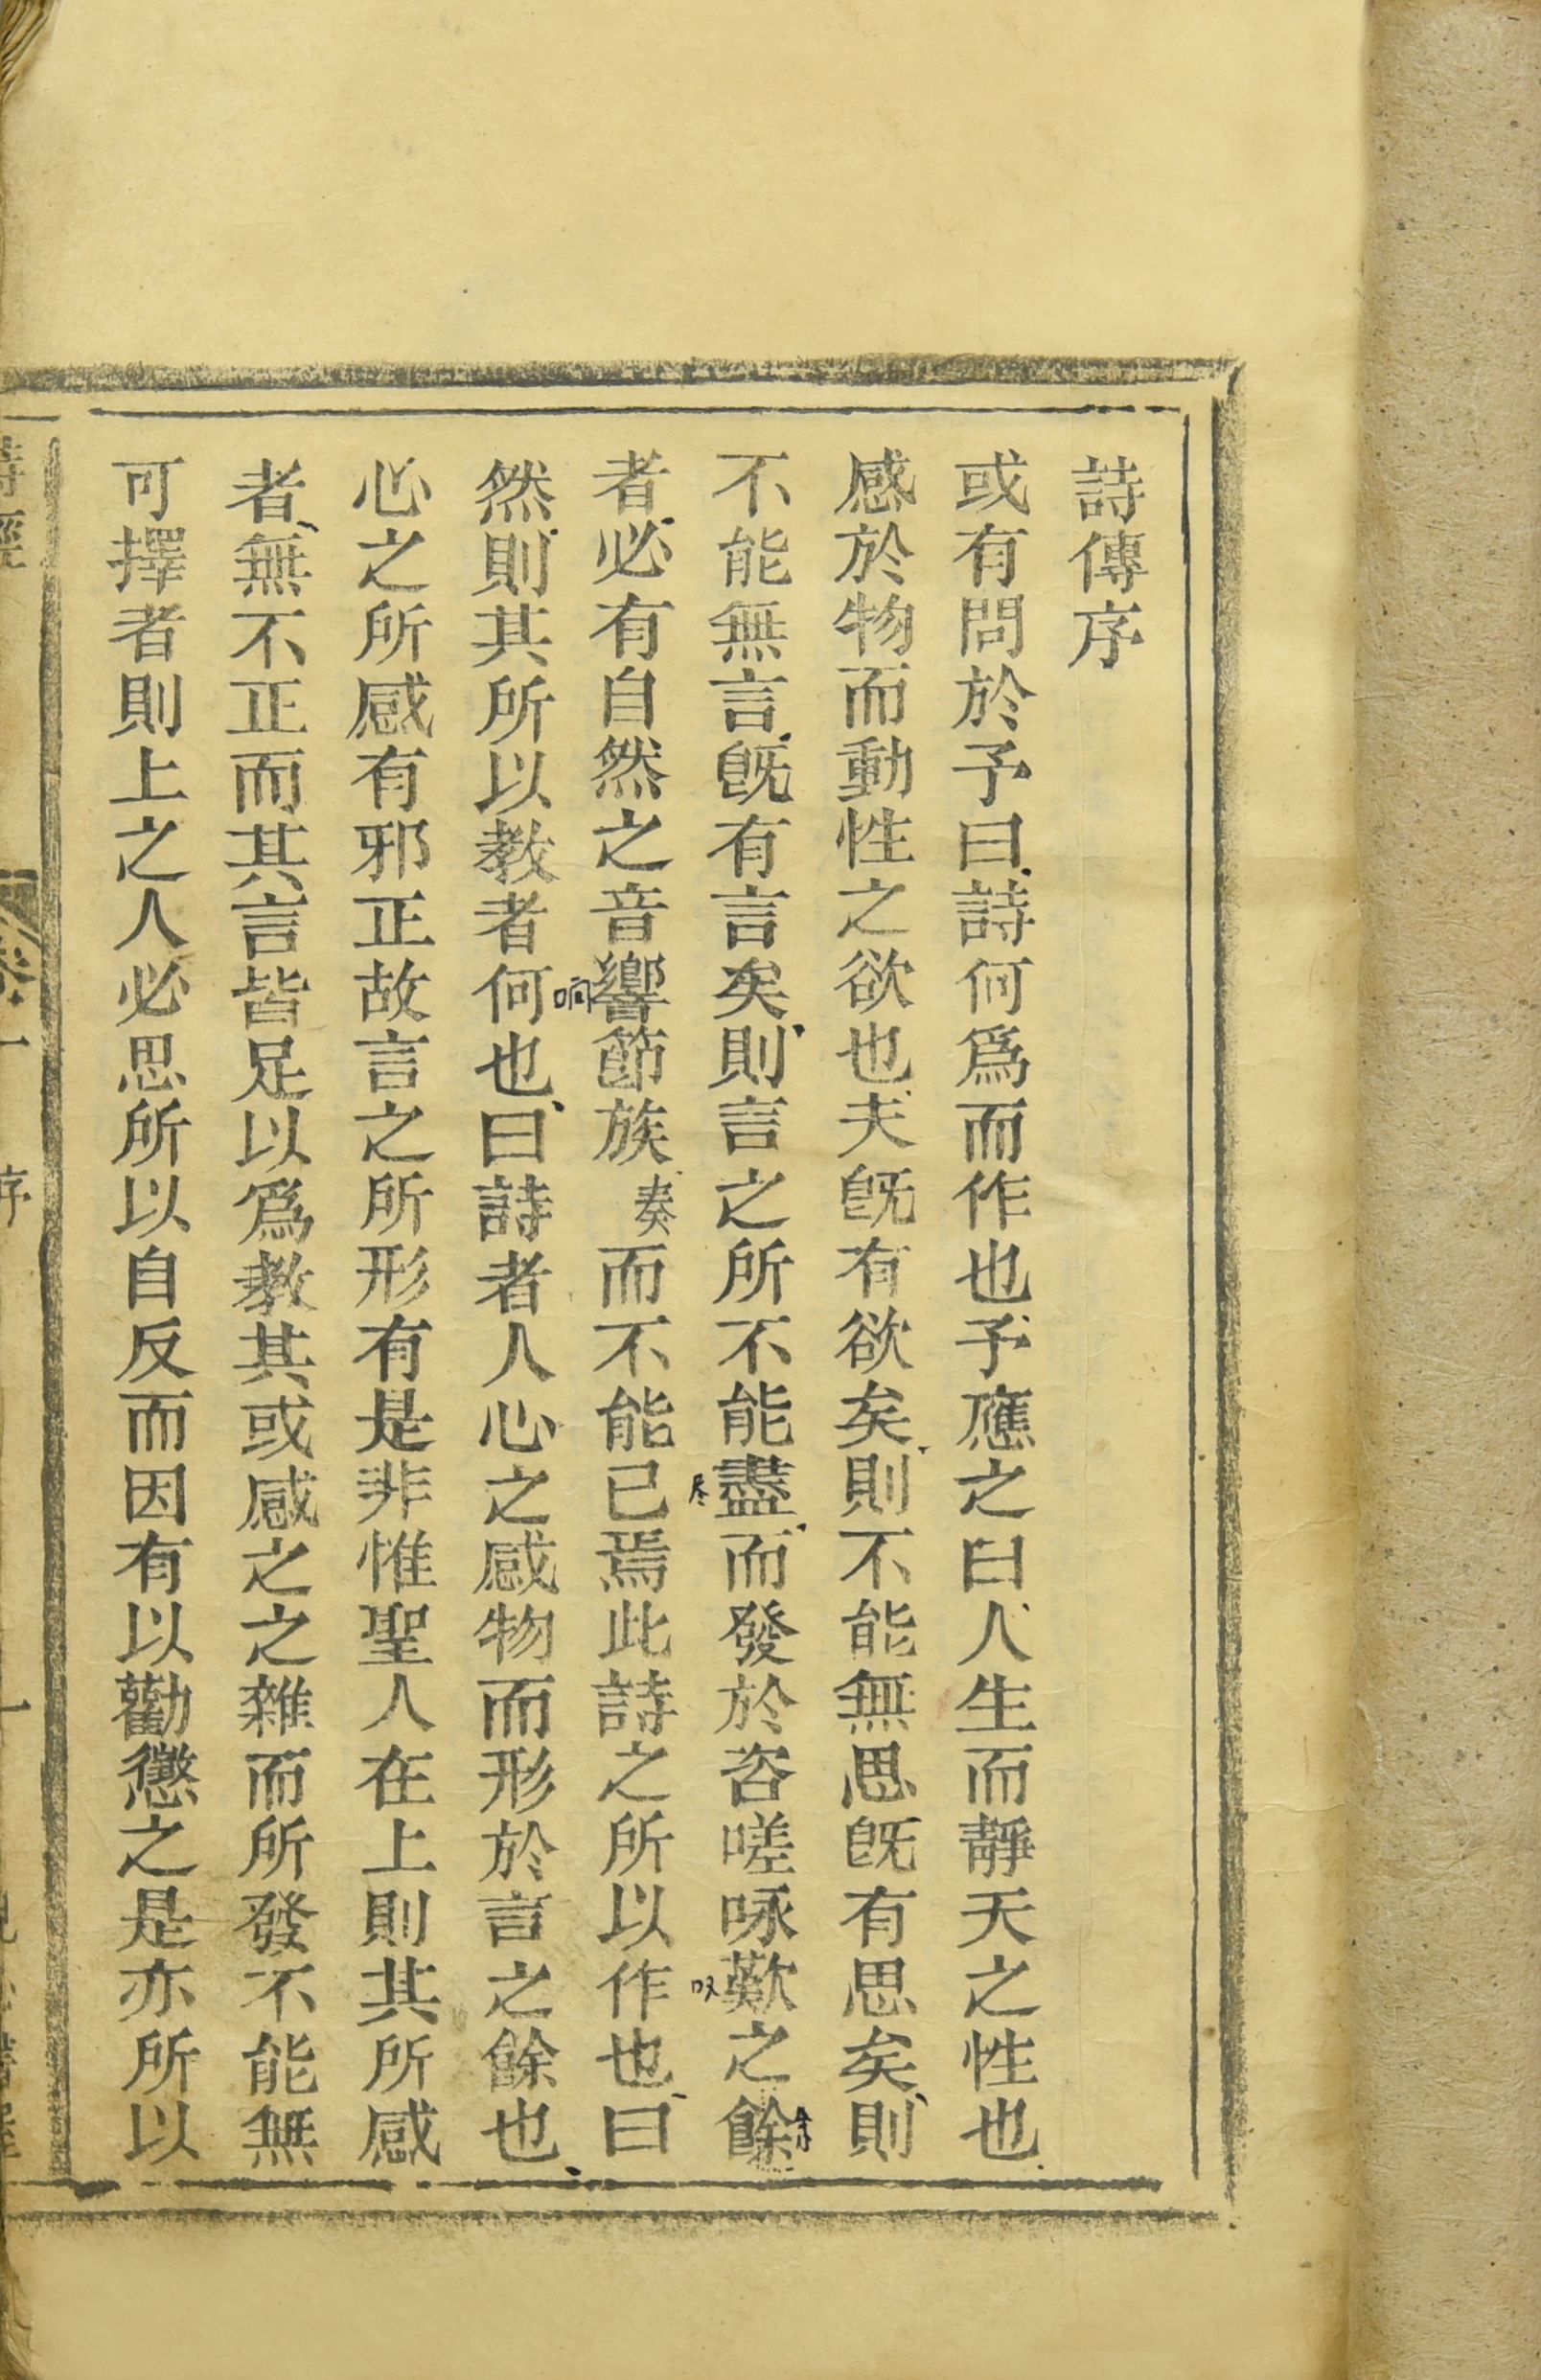 詩傳序
或有問於予曰詩何爲而作也予應之曰人生而靜天之性也
感於物而動性之欲也夫旣有欲矣則不能無思旣有思矣則
不能無言旣有言矣則言之所不能盡而發於咨嗟咏歎之餘
余
尽
叹
者必有自然之音響節族奏而不能已焉此詩之所以作也曰
响
然則其所以教者何也曰詩者人心之感物而形於言之餘也
心之所感有邪正故言之所形有是非惟聖人在上則其所感
者無不正而其言皆足以爲教其或感之之雜而所發不能無
可擇者則上之人必思所以自反而因有以勸懲之是亦所以
詩經
卷一
序
一